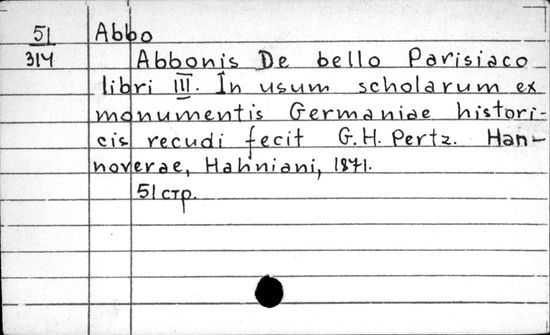 51 Abbo
314 Abbonis De bello Parisiaco
libri III. In usum scholarum ex
monumentis Germaniae histori-
cis recudi fecit G. H. Pertz. Han-
noverae, Hahniani, 1871.
51 стр.